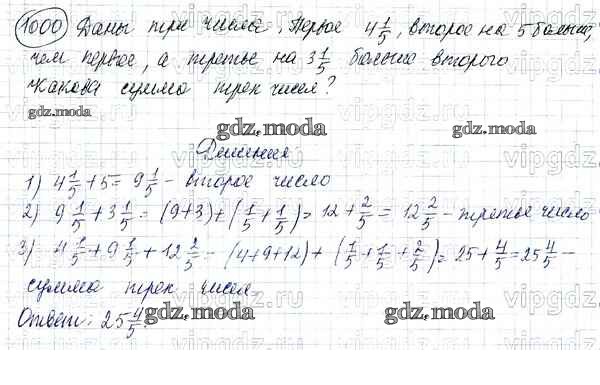 1000 Даны три числа. Первое 4 1/5, второе на 5 больше,
чем первое, а третье на 3 1/5 больше второго
Какова сумма трех чисел?
gdz.moda
gdz.moda
Решение
1) 4 1/5 + 5 = 9 1/5 - второе число
2) 9 1/5 + 3 1/5 = (9+3) + (1/5 + 1/5) = 12 + 2/5 = 12 2/5 - третье число
3) 4 1/5 + 9 1/5 + 12 2/5 = (4+9+12) + (1/5 + 1/5 + 2/5) = 25 + 4/5 = 25 4/5 -
сумма трех чисел.
Ответ: 25 4/5
gdz.moda
gdz.moda
gdz.moda
vipgdz.ru